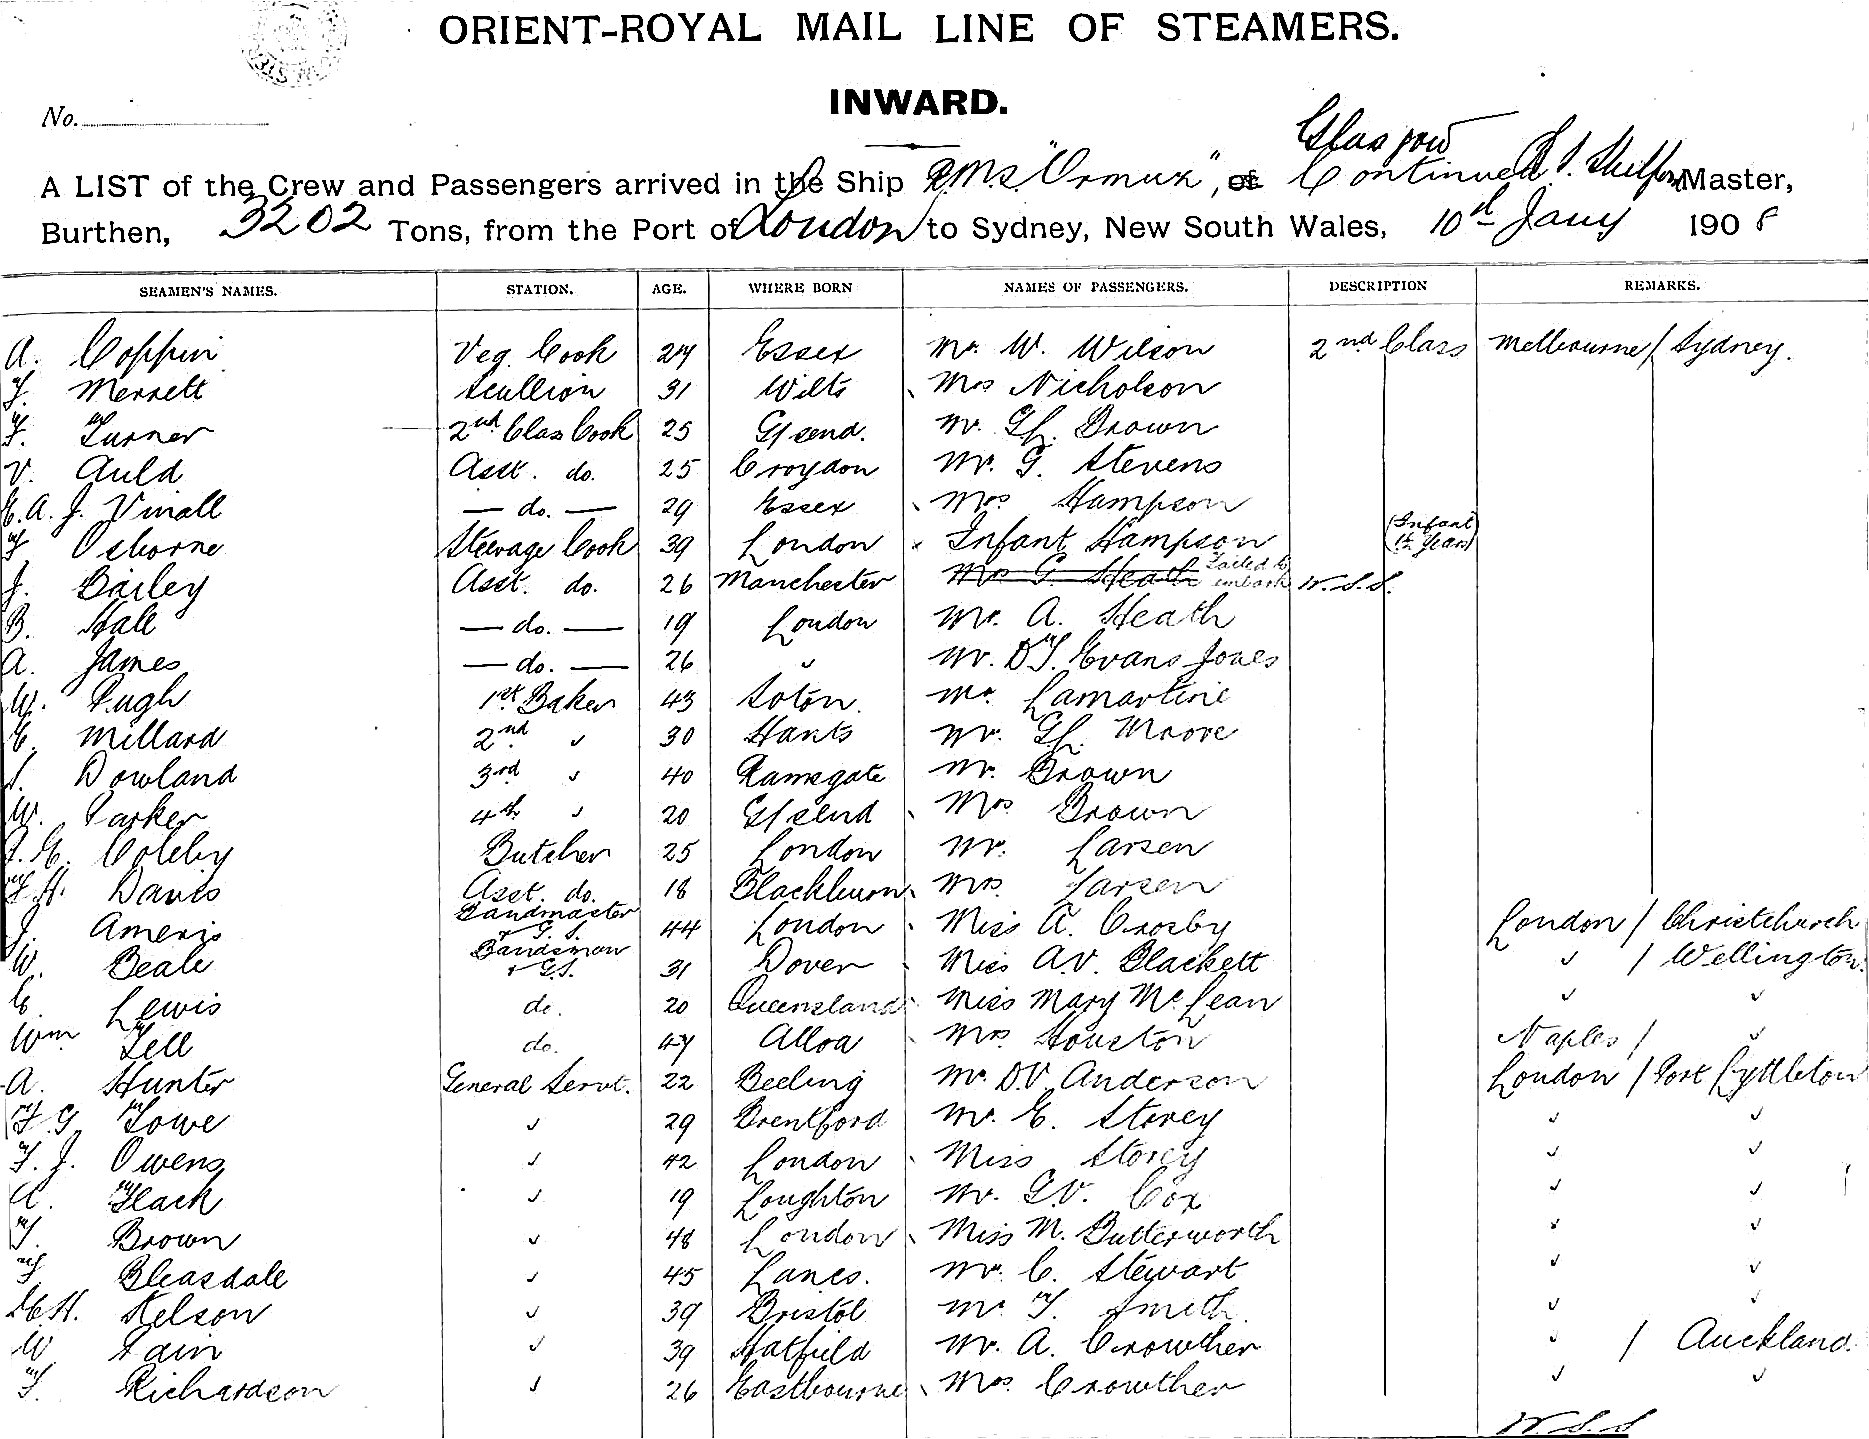 ORIENT-ROYAL MAIL LINE OF STEAMERS.
INWARD.
No.
Glasgow
A LIST of the Crew and Passengers arrived in the Ship R.M.S. "Ormuz", of Continued Master,
Burthen, 3202 Tons, from the Port of London to Sydney, New South Wales, 10th Jany 1908
SEAMEN'S NAMES. STATION. AGE. WHERE BORN NAMES OF PASSENGERS. DESCRIPTION REMARKS.
A. Coppin Veg. Cook 24 Essex Mr. W. Wilson 2nd Class Melbourne / Sydney.
F. Merrett Scullion 31 Wilts Mrs Nicholson
F. Turner 2nd Clas Cook 25 G/send. Mr. Brown
V. Auld Asst. do. 25 Croydon Mr. G. Stevens
E. A. J. Vinall — do. — 29 Essex Mrs Hampson
F Osborne Steerage Cook 39 London Infant Hampson (Infant 1½ Year)
J. Bailey Asst. do. 26 Manchester Mrs G. Heath Failed to embark W.S.S.
B. Hall — do. — 19 London Mr. A. Heath
A. James — do. — 26 " Mr. D T. Evans Jones
W. Pugh 1st Baker 43 Soton. Mr. Lamartine
E. Millard 2nd " 30 Hants Mr. Moore
Dowland 3rd " 40 Ramsgate Mr. Brown
W. Parker 4th " 20 G/send Mrs Brown
Coleby Butcher 25 London Mr. Larsen
F. H. Davis Asst. do. 18 Blackburn Mrs. Larsen
J. Ameris Bandmaster + G.S. 44 London Miss A. Crosby London / Christchurch
W. Beale Bandsman + G.S. 31 Dover Miss A.V. Blackett " / Wellington.
E. Lewis do. 20 Queensland Miss Mary McLean " "
Wm Tell do. 47 Alloa Mrs. Houston Naples / "
A. Hunter General Servt. 22 Beeling Mr. D.V. Anderson London / Port Lyttleton
F. G. Towe " 29 Brentford Mr. E. Storey " "
F. J. Owens " 42 London Miss Storey " "
A. Flack " 19 Loughton Mr. G.V. Cox " "
T. Brown " 48 London Miss M. Butterworth " "
F Bleasdale " 45 Lancs. Mr. C. Stewart " "
H. Nelson " 39 Bristol Mr. T. Smith. " "
W Pain " 39 Hatfield Mr. A. Crowther " / Auckland.
F. Richardson " 26 Eastbourne Mrs. Crowther " "
W.S.S